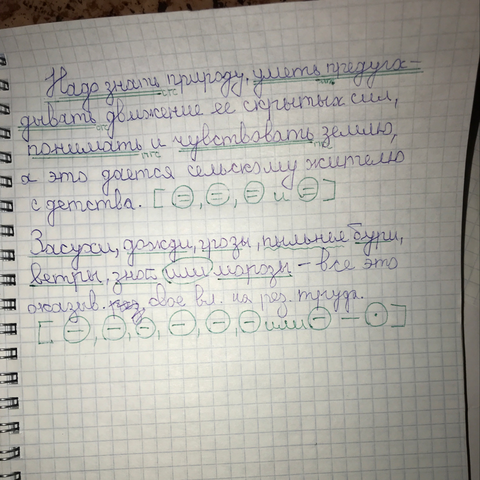 Надо знать природу, уметь предуга-
дывать движение её скрытых сил,
понимать и чувствовать землю,
а это даётся сельскому жителю
с детства. [ = , = , = и = ]
Засухи, дожди, грозы, пыльные бури,
ветры, зной или морозы – все это
оказыв. свое вл. на рез. труда.
[ – , – , – , – , – , – или – – • ]